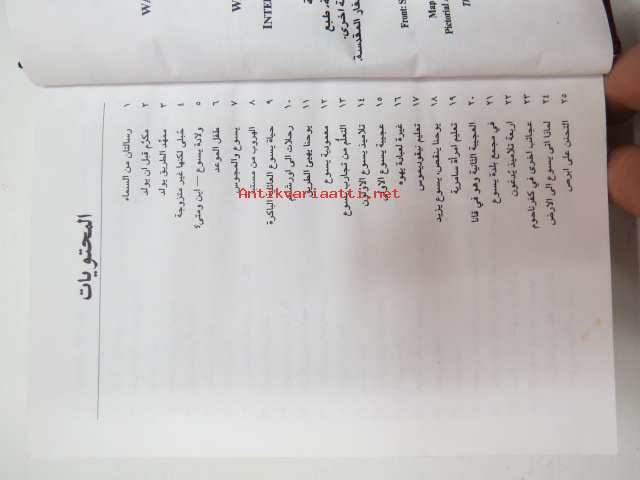 المحتويات
١ رسالتان من السماء
٢ مكرَّم قبل ان يولد
٣ ممهِّد الطريق يولد
٤ حُبلى لكنها غير متزوجة
٥ ولادة يسوع — اين ومتى؟
٦ طفل الموعد
٧ يسوع والمجوس
٨ الهروب من
٩ حياة يسوع العائلية الباكرة
١٠ رحلات الى اورشليم
١١ يوحنا يهيئ الطريق
١٢ معمودية يسوع
١٣ التعلُّم من تجارب يسوع
١٤ تلاميذ يسوع الاولون
١٥ عجيبة يسوع الاولى
١٦ غيرة لعبادة يهوه
١٧ تعليم نيقوديموس
١٨ يوحنا ينقص، يسوع يزيد
١٩ تعليم امرأة سامرية
٢٠ العجيبة الثانية وهو في قانا
٢١ في مجمع بلدة يسوع
٢٢ اربعة تلاميذ يُدعَون
٢٣ عجائب اخرى في كفرناحوم
٢٤ لماذا اتى يسوع الى الارض
٢٥ التحنن على ابرص
WA
W
INTE
Front: S
Map
Pictorial
ة اخرى.
طبع
المقدسة.
Antikvariaatti.net